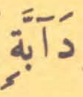 دَآبَّةٍ